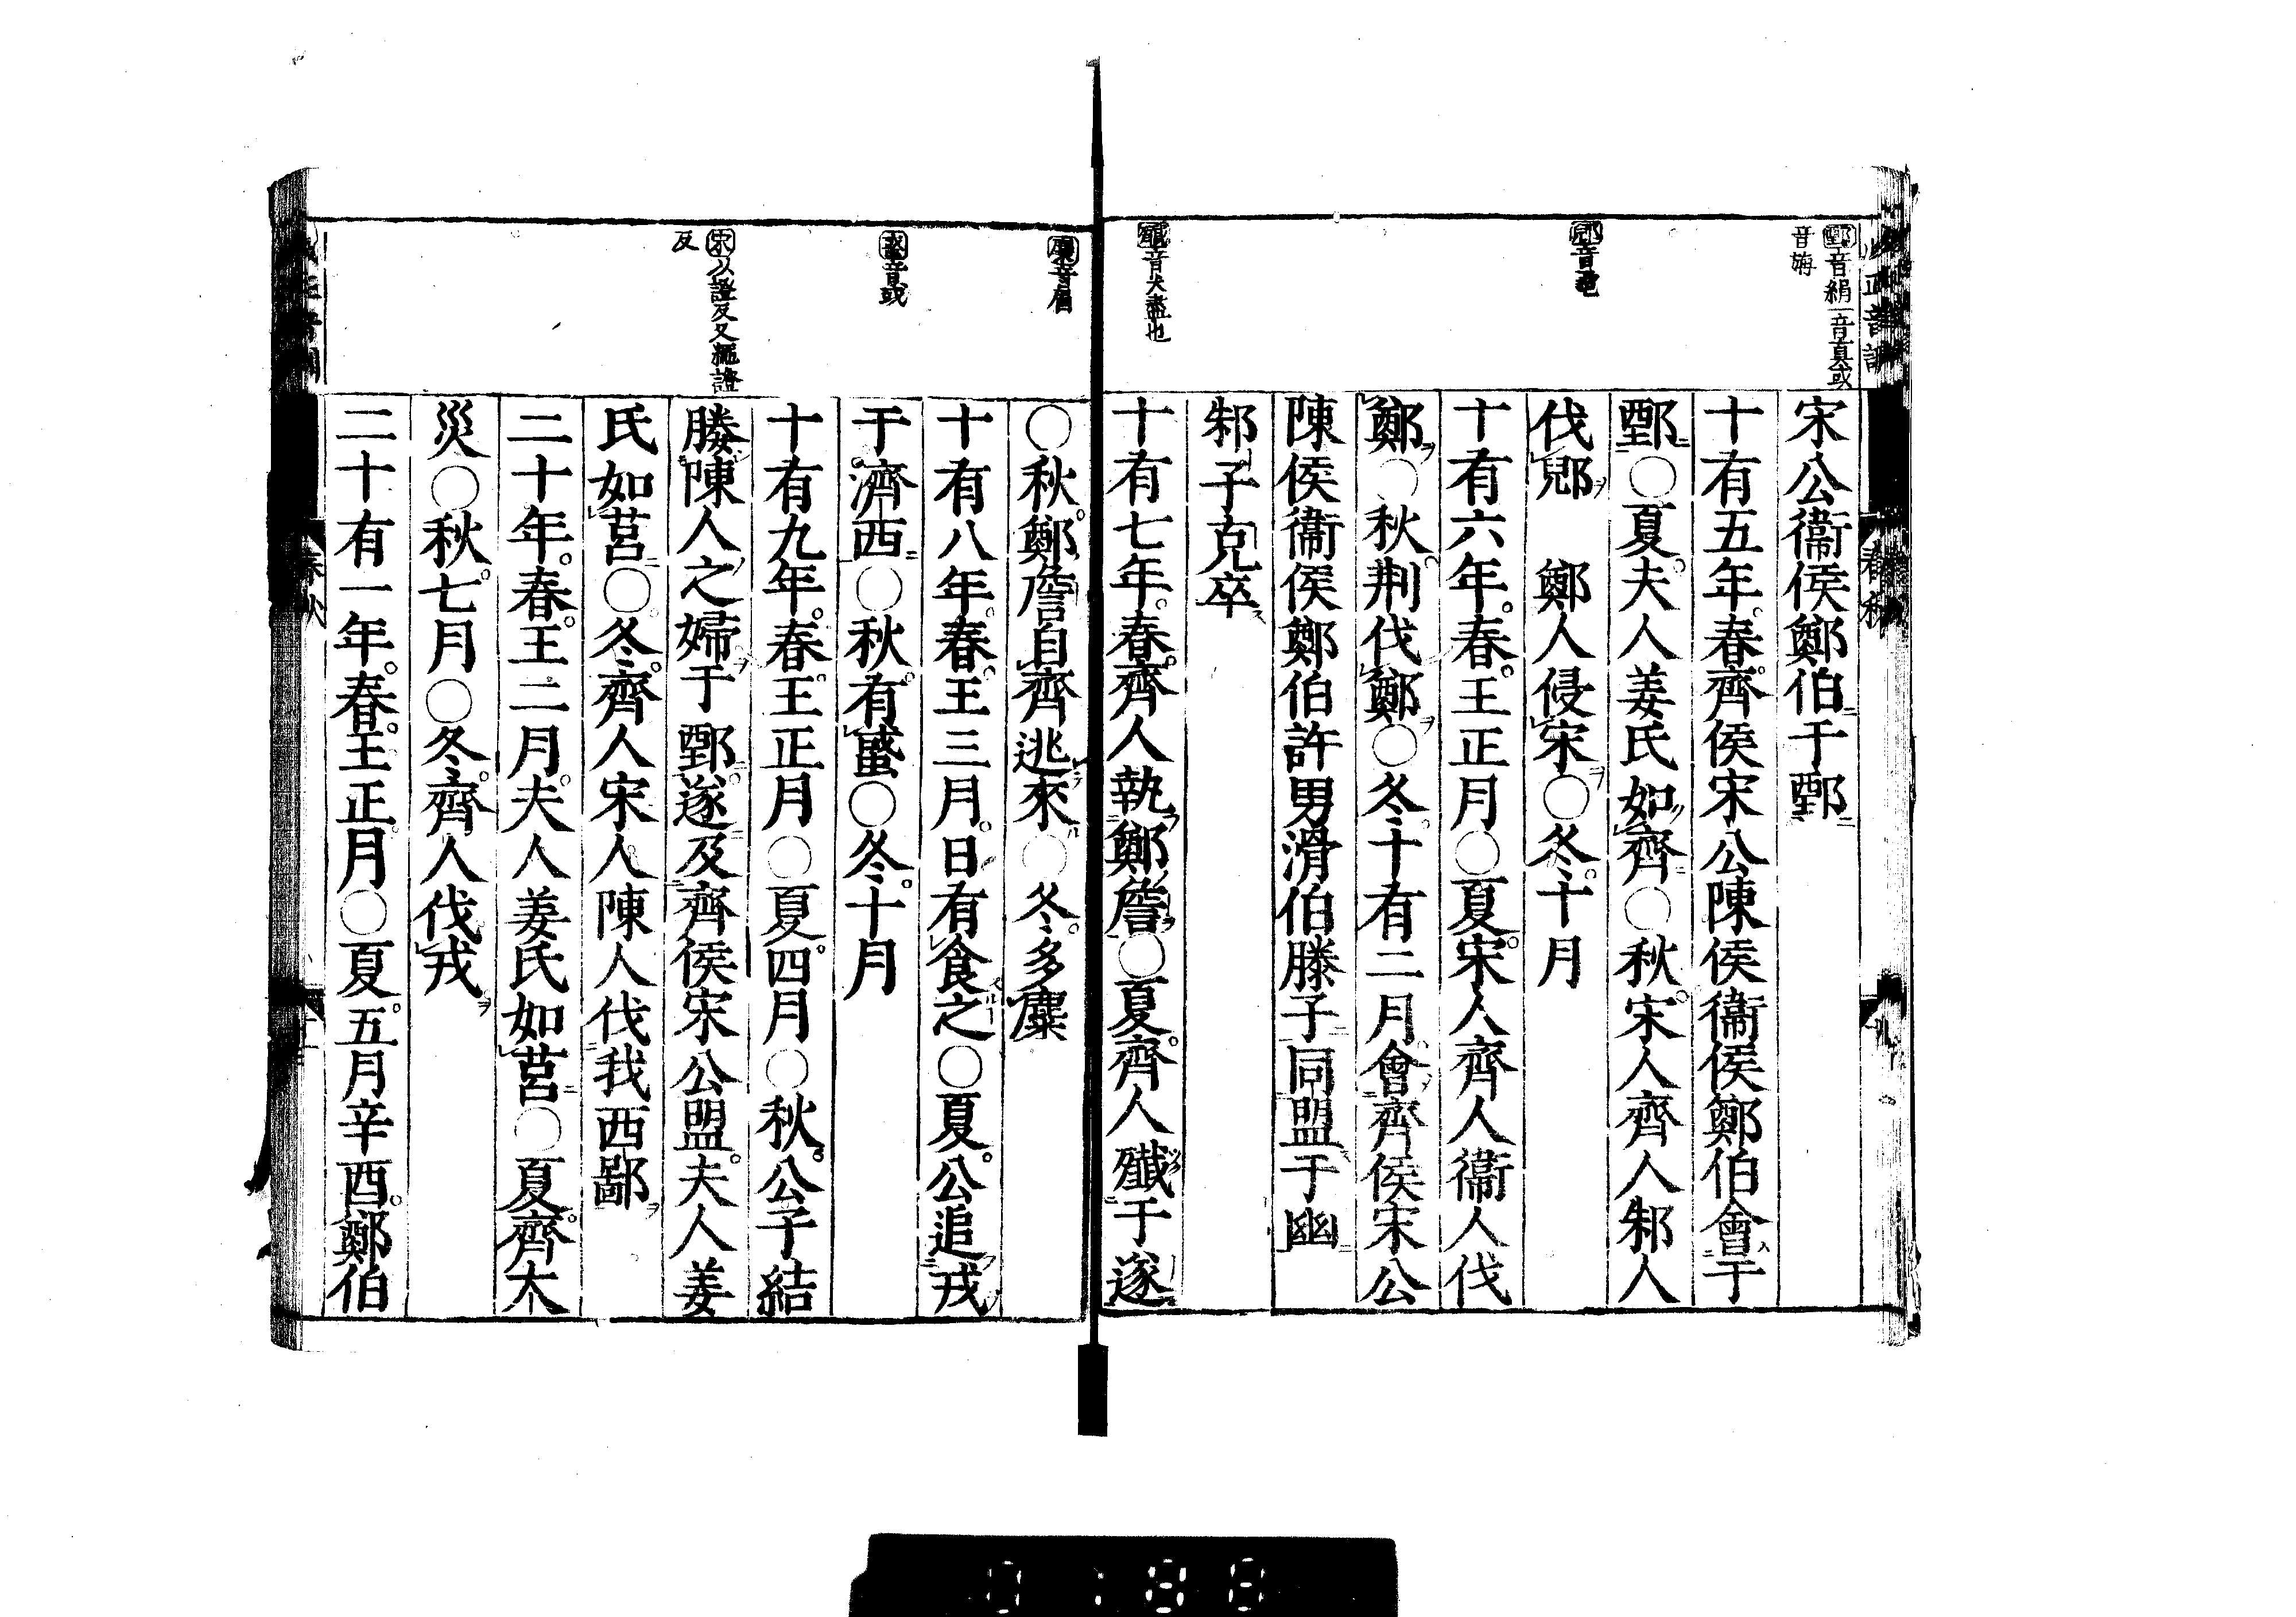 鄄音絹一音真或
音
郳音
殲音尖盡也
宋公衞侯鄭伯于鄄
十有五年。春。齊侯宋公陳侯衞侯鄭伯會于
鄄○夏。夫人姜氏如齊○秋。宋人齊人邾人
伐郳 鄭人侵宋○冬。十月
十有六年。春。王正月○夏。宋人齊人衞人伐
鄭○秋。荆伐鄭○冬。十有二月會齊侯宋公
陳侯衞侯鄭伯許男滑伯滕子同盟于幽
邾子克卒
十有七年。春。齊人執鄭詹○夏。齊人殲于遂
麋音眉
蜮音或
以證反又繩證
反
○秋。鄭詹自齊逃來○冬。多麋
十有八年。春。王三月。日有食之○夏。公追戎
于濟西○秋。有蜮○冬。十月
十有九年。春。王正月○夏。四月○秋。公子結
媵陳人之婦于鄄。遂及齊侯宋公盟。夫人姜
氏如莒○冬。齊人宋人陳人伐我西鄙
二十年。春。王二月。夫人姜氏如莒○夏。齊大
災○秋。七月○冬。齊人伐戎
二十有一年。春。王正月○夏。五月辛酉。鄭伯
春秋